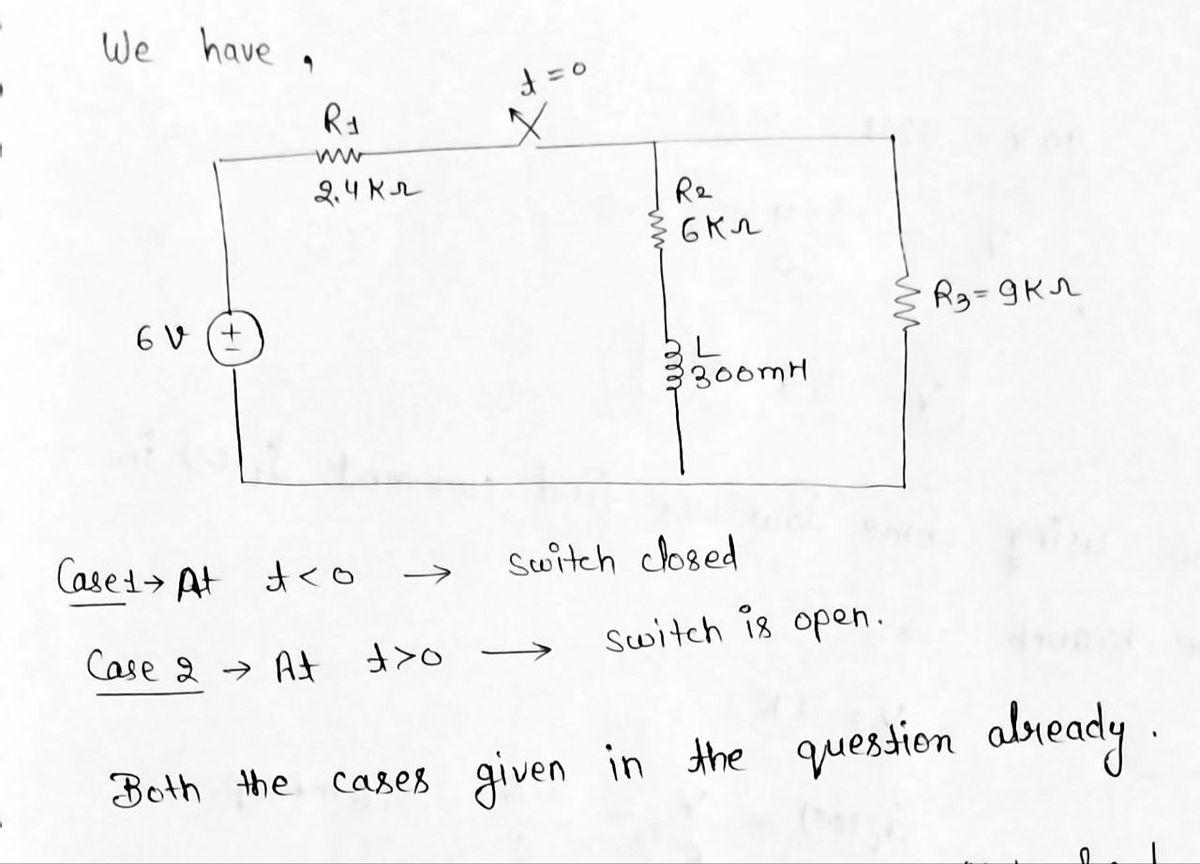 We have,
t=0
R1
2.4KΩ
R2
6KΩ
R3=9KΩ
6V
+
−
L
300mH
Case1→ At t<0 → switch closed
Case 2 → At t>0 → switch is open.
Both the cases given in the question already.